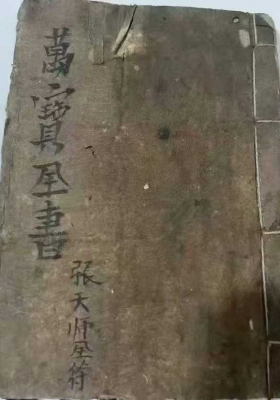 萬寶全書
張天师全符